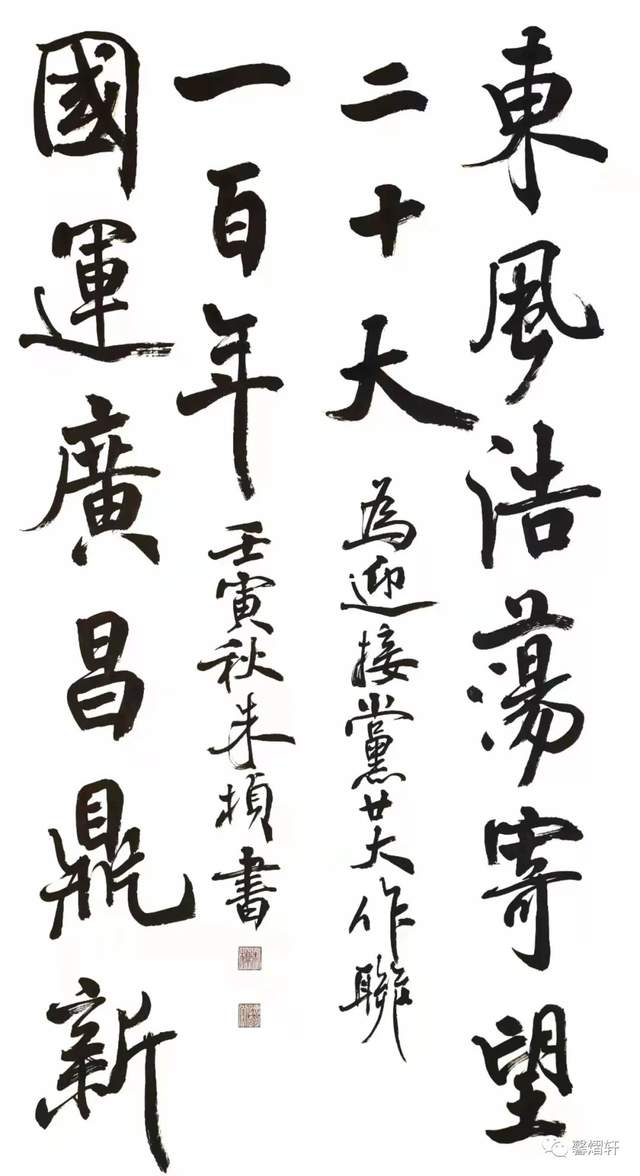 東風浩蕩寄望
二十大
為迎接黨廿大作聯
國運廣昌鼎新
一百年
壬寅秋朱書
馨熠轩